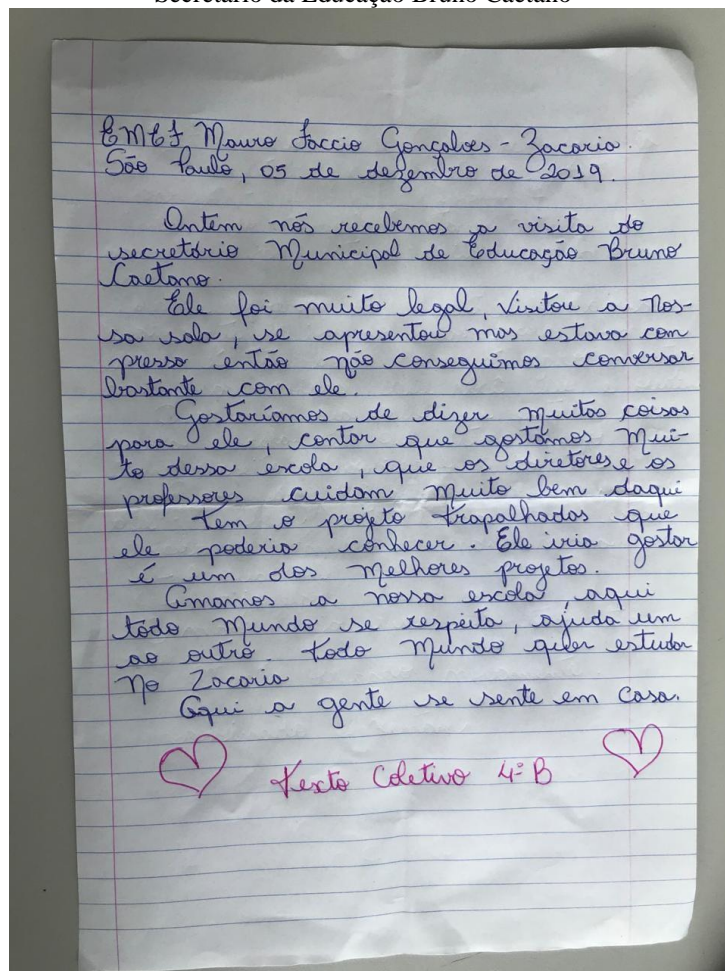 Secretário da Educação Bruno Caetano
EMEF Mauro Faccio Gonçalves - Zacaria.
São Paulo, 05 de dezembro de 2019.
Ontem nós recebemos a visita do
secretário Municipal de Educação Bruno
Caetano.
Ele foi muito legal, Visitou a Nos-
sa sala, se apresentou mas estava com
pressa então não conseguimos conversar
bastante com ele.
Gostaríamos de dizer muitas coisas
para ele, contar que gostamos Mui-
to dessa escola, que os diretores e os
professores cuidam muito bem daqui
Tem o projeto trapalhadas que
ele poderia conhecer. Ele iria gostar
é um dos melhores projetos.
Amamos a nossa escola, aqui
todo Mundo se respeita, ajuda um
ao outro. Todo Mundo quer estudar
No Zacaria
Aqui a gente se sente em casa.
Texto Coletivo 4º B